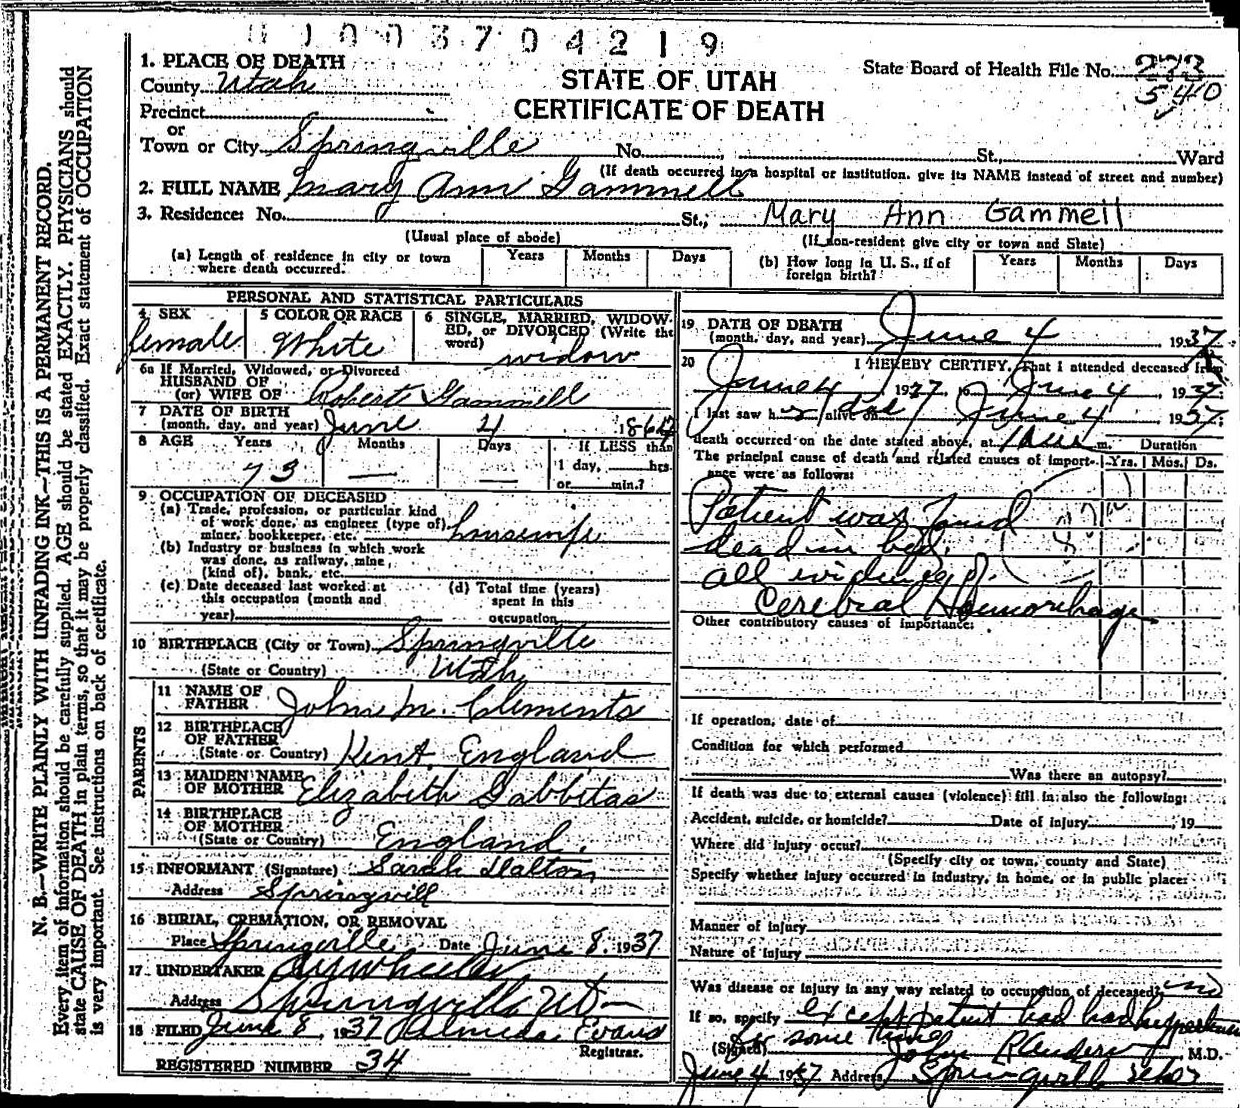 1003704219
STATE OF UTAH
CERTIFICATE OF DEATH
State Board of Health File No. 273
540
1. PLACE OF DEATH
County Utah
Precinct
or
Town or City Springville No. St., Ward
(If death occurred in a hospital or institution, give its NAME instead of street and number)
2. FULL NAME Mary Ann Gammell
3. Residence: No. St., Mary Ann Gammell
(Usual place of abode) (If non-resident give city or town and State)
(a) Length of residence in city or town where death occurred. Years Months Days
(b) How long in U. S., if of foreign birth? Years Months Days
PERSONAL AND STATISTICAL PARTICULARS
4 SEX female
5 COLOR OR RACE White
6 SINGLE, MARRIED, WIDOWED, or DIVORCED (Write the word) widow
6a If Married, Widowed, or Divorced
HUSBAND OF
(or) WIFE OF Robert Gammell
7 DATE OF BIRTH
(month, day, and year) June 4 1864
8 AGE Years 73 Months — Days — If LESS than
1 day, hrs.
or min.?
9 OCCUPATION OF DECEASED
(a) Trade, profession, or particular kind
of work done, as engineer (type of)
miner, bookkeeper, etc. housewife
(b) Industry or business in which work
was done, as railway, mine,
(kind of), bank, etc.
(c) Date deceased last worked at
this occupation (month and
year)
(d) Total time (years)
spent in this
occupation
10 BIRTHPLACE (City or Town) Springville
(State or Country) Utah
PARENTS
11 NAME OF
FATHER John M. Clements
12 BIRTHPLACE
OF FATHER
(State or Country) Kent England
13 MAIDEN NAME
OF MOTHER Elizabeth Gabbitas
14 BIRTHPLACE
OF MOTHER
(State or Country) England.
15 INFORMANT (Signature) Sarah Dalton
Address Springvill
16 BURIAL, CREMATION, OR REMOVAL
Place Springville Date June 8. 1937
17 UNDERTAKER A Y Wheeler
Address Springville Ut
18 FILED June 8, 1937 Almeda Evans
Registrar.
REGISTERED NUMBER 34
19 DATE OF DEATH
(month, day, and year) June 4 1937
20 I HEREBY CERTIFY, That I attended deceased from
June 4 1937 to June 4 1937
I last saw her alive dead June 4 1937
death occurred on the date stated above, at m. Duration
The principal cause of death and related causes of import- Yrs. Mos. Ds.
ance were as follows:
Patient was found
dead in bed.
all evidence of
Cerebral Haemorrhage
Other contributory causes of importance:
If operation, date of
Condition for which performed
Was there an autopsy?
If death was due to external causes (violence) fill in also the following:
Accident, suicide, or homicide? Date of injury , 19
Where did injury occur?
(Specify city or town, county and State)
Specify whether injury occurred in industry, in home, or in public place:
Manner of injury
Nature of injury
Was disease or injury in any way related to occupation of deceased? no
If so, specify except patient had had hypertension
for some time
(Signed) John R Anderson, M.D.
June 4 1937 Address Springville Utah
N. B.—WRITE PLAINLY WITH UNFADING INK—THIS IS A PERMANENT RECORD.
Every item of information should be carefully supplied. AGE should be stated EXACTLY. PHYSICIANS should
state CAUSE OF DEATH in plain terms, so that it may be properly classified. Exact statement of OCCUPATION
is very important. See instructions on back of certificate.